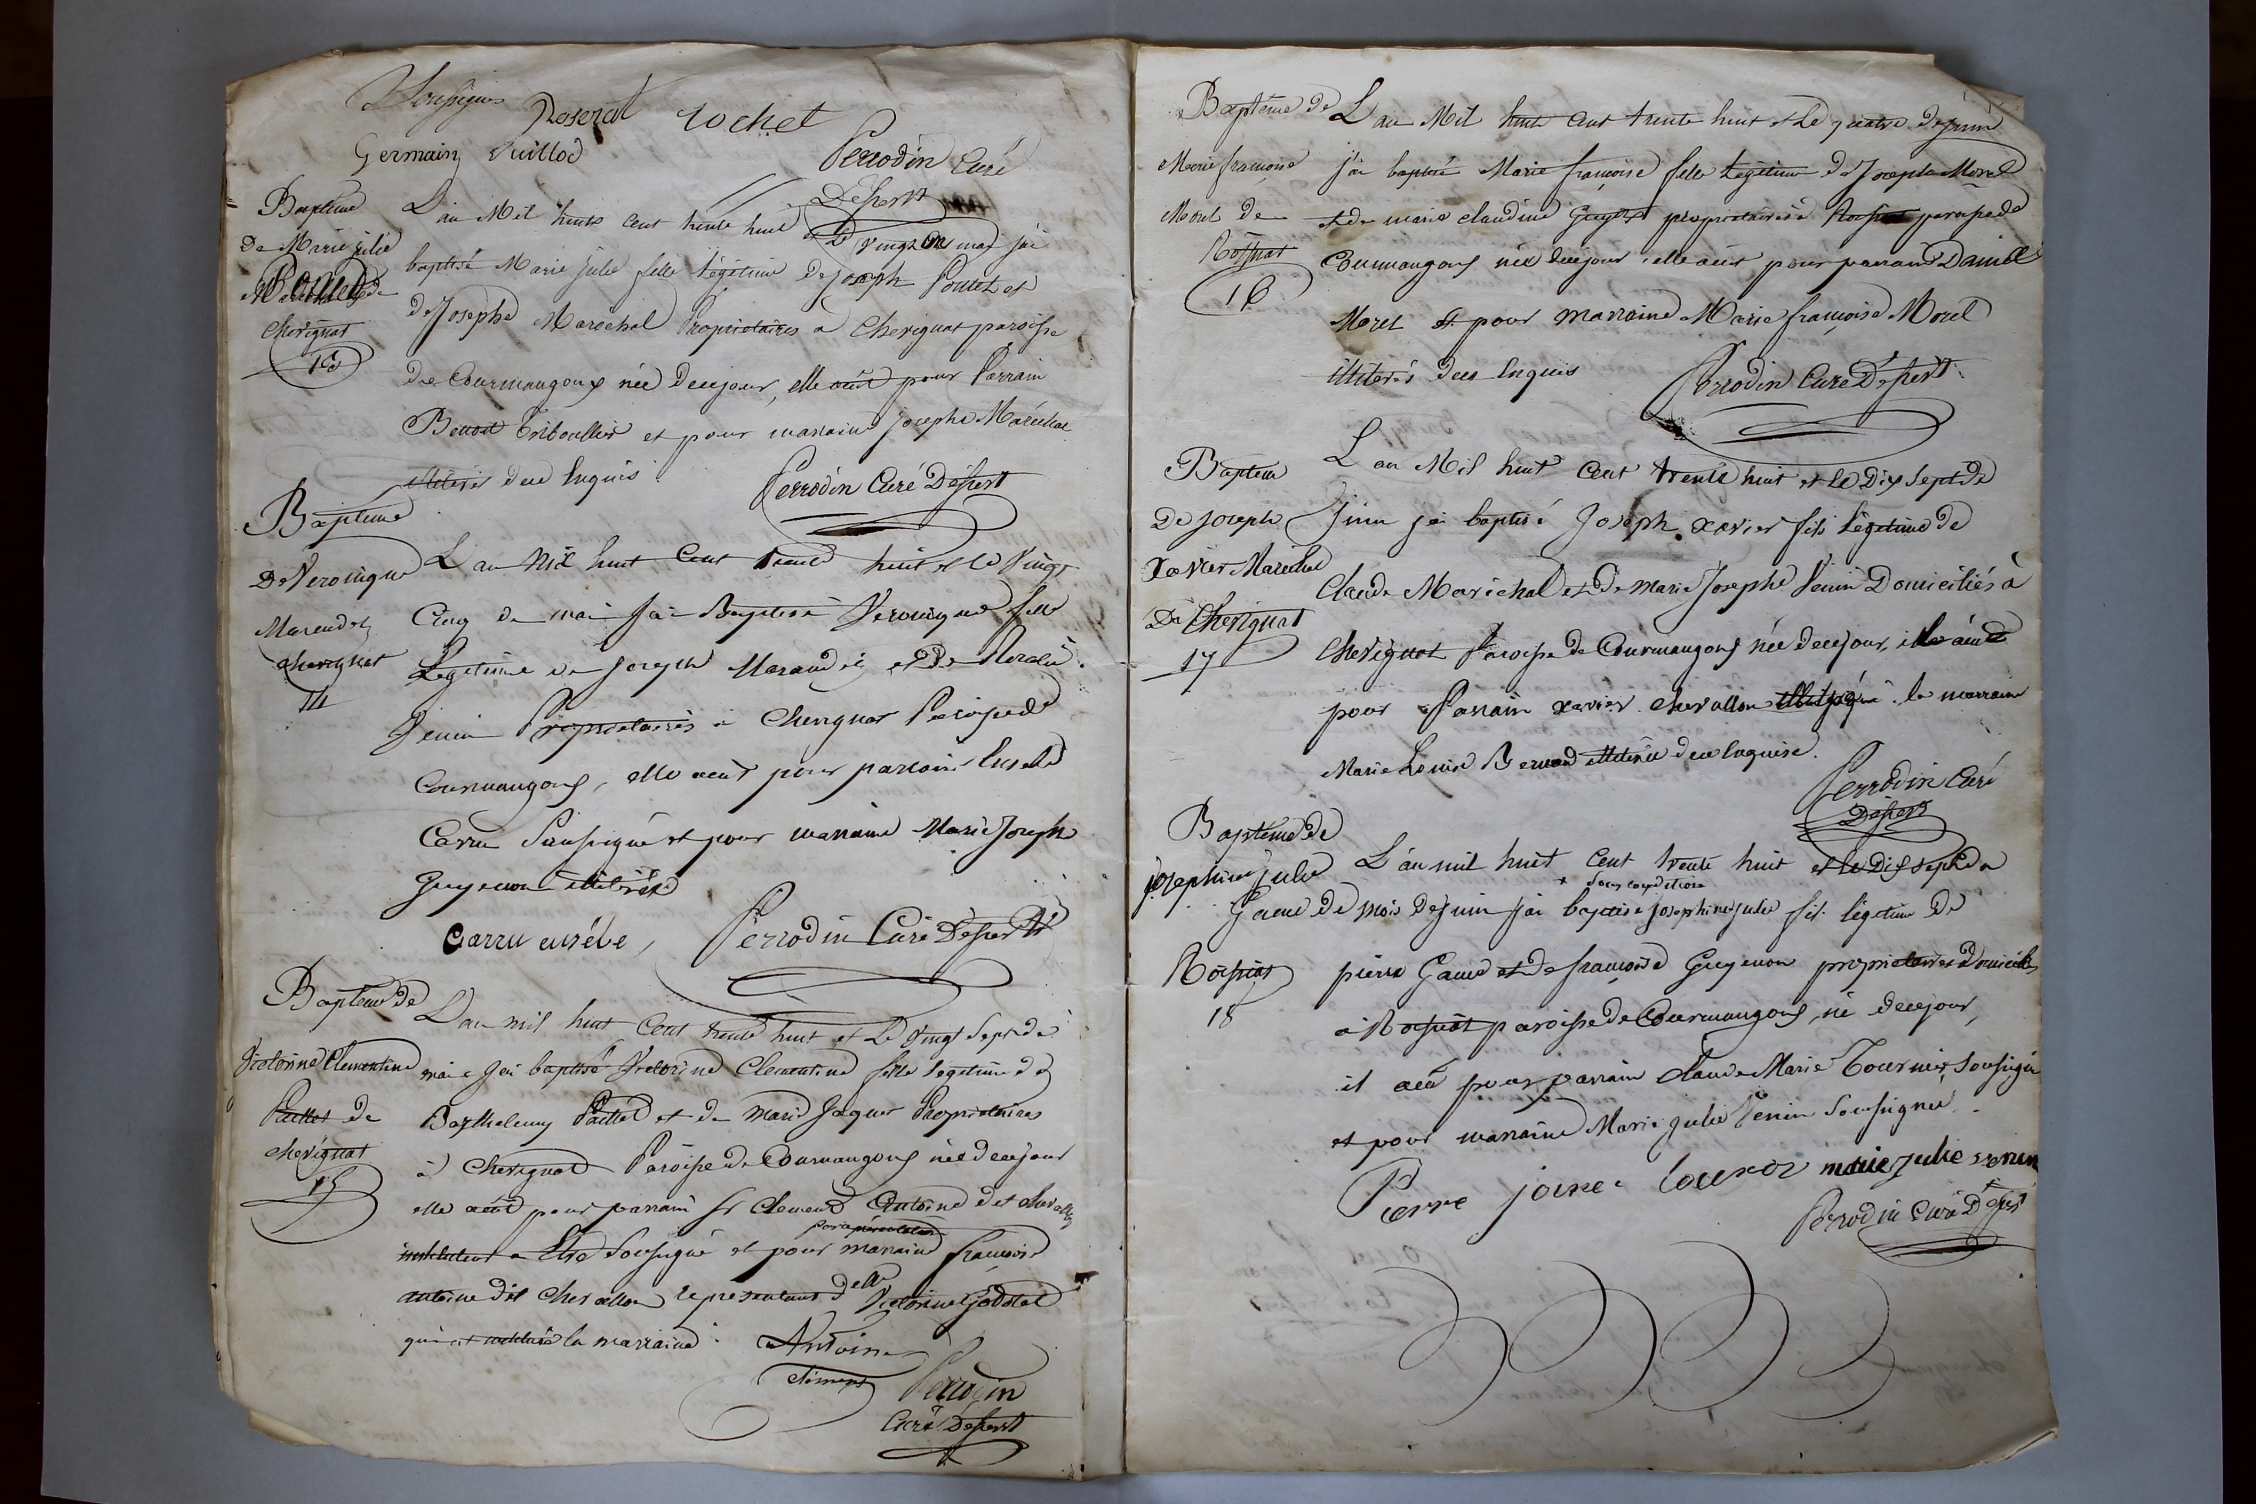 Soussignés
Roserat rochet
Germain Vuillod
Perrodin Curé
Desservt
Baptême
De Marie julie
Poulet de
Chevignat
13
L'an Mil huit cent trente huit et le Vingt un mai j'ai
baptisé Marie julie fille légitime de joseph Poulet et
de Josephe Maréchal Propriétaires a Chevignat paroisse
de Courmangoux née de ce jour, elle a eüt pour Parrain
Benoit Triboullier et pour marraine josephe Maréchal
illiterés de ce Enquis
Perrodin Curé Désservt
Baptême
De Veronique
Marendet
chevignat
14
L'an Mil huit Cent trente huit et le Vingt
Cinq de mai J'ai Baptisé Veronique fille
Légitime de joseph Marandet et de Rosalie
Venin Propriétaires à Chevignat Paroisse de
Courmangoux, elle a eüt pour parrain Eusebe
Carru Soussigné et pour marraine Marie Joseph
Guyenon illiterée
Carru eusébe
Perrodin Curé Desservt
Baptême de
Victorine Clementine
Paillet de
chevignat
15
L'an mil huit Cent trente huit et Le Vingt Sept de
mai J'ai baptisé Victorine Clementine fille legitime de
Barthelemy Paillet et de marie Jaquet Propriétaires
à Chevignat Paroisse de Courmangoux née de ce jour
elle a eüt pour parrain Sr Clement Antoine dit chevallon
instituteur a Soussigné et pour marraine françoise
antoine dit chevallon représentant delle Victorine Godotet
qui est la marraine
Antoine
clément
Perrodin
Curé Desservt
Baptême de
Marie françoise
Morel de
Rosset
16
L'an Mil huit Cent trente huit et Le quatre de juin
j'ai baptisé Marie françoise fille Légitime de Joseph Morel
et de marie claudine Guyot propriétaires à paroisse de
Courmangoux née de ce jour elle a eüt pour parrain Daniel
Morel et pour marraine Marie françoise Morel
illiterés de ce Enquis
Perrodin Curé Désservt
Baptême
De joseph
Xavier Maréchal
De Chevignat
17
L'an Mil huit Cent trente huit et Le Dix Sept de
Juin j'ai baptisé Joseph xavier fils Légitime de
Claude Maréchal et de Marie Josephe Venin Domiciliés à
Chevignat Paroisse de Courmangoux née de ce jour, il a eüt
pour Parrain xavier chevallon la marraine
Marie Louise Bernard illiterée de ce Enquise.
Perrodin Curé
Désservt
Baptême de
josephine julie
18
L'an mil huit Cent trente huit et le Dix sept
sous condition
de mois de Juin j'ai baptisé josephine julie légitime de
pierre et de françoise Guyenon propriétaires Domiciliés
à paroisse de Courmangoux, né de ce jour,
il a eü pour parrain claude Marie Tournier Soussigné
et pour marraine Marie julie Venin Soussignée
Pierre marie julie venin
Perrodin Curé Desst